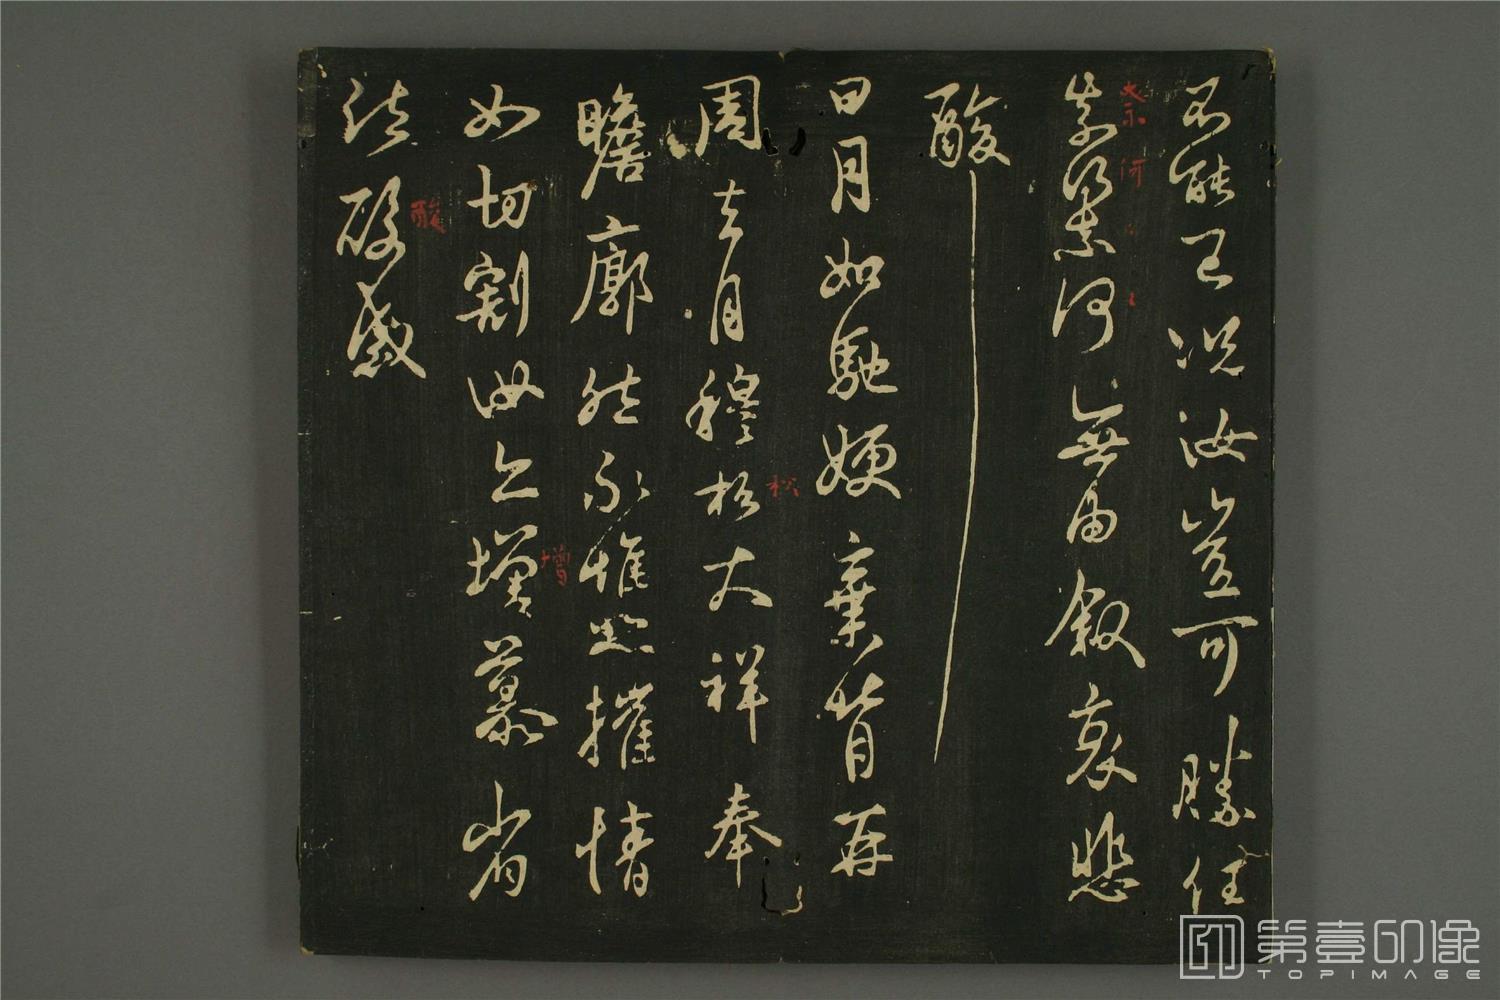 不能已況汝豈可勝任
奈何
奈何奈何無由敘哀悲
酸
日月如馳嫂棄背再
周去月穆松大祥奉
瞻廓然永惟悲摧情
增
如切割汝亦增慕省
酸
疏酸感
第壹印像
TOPIMAGE